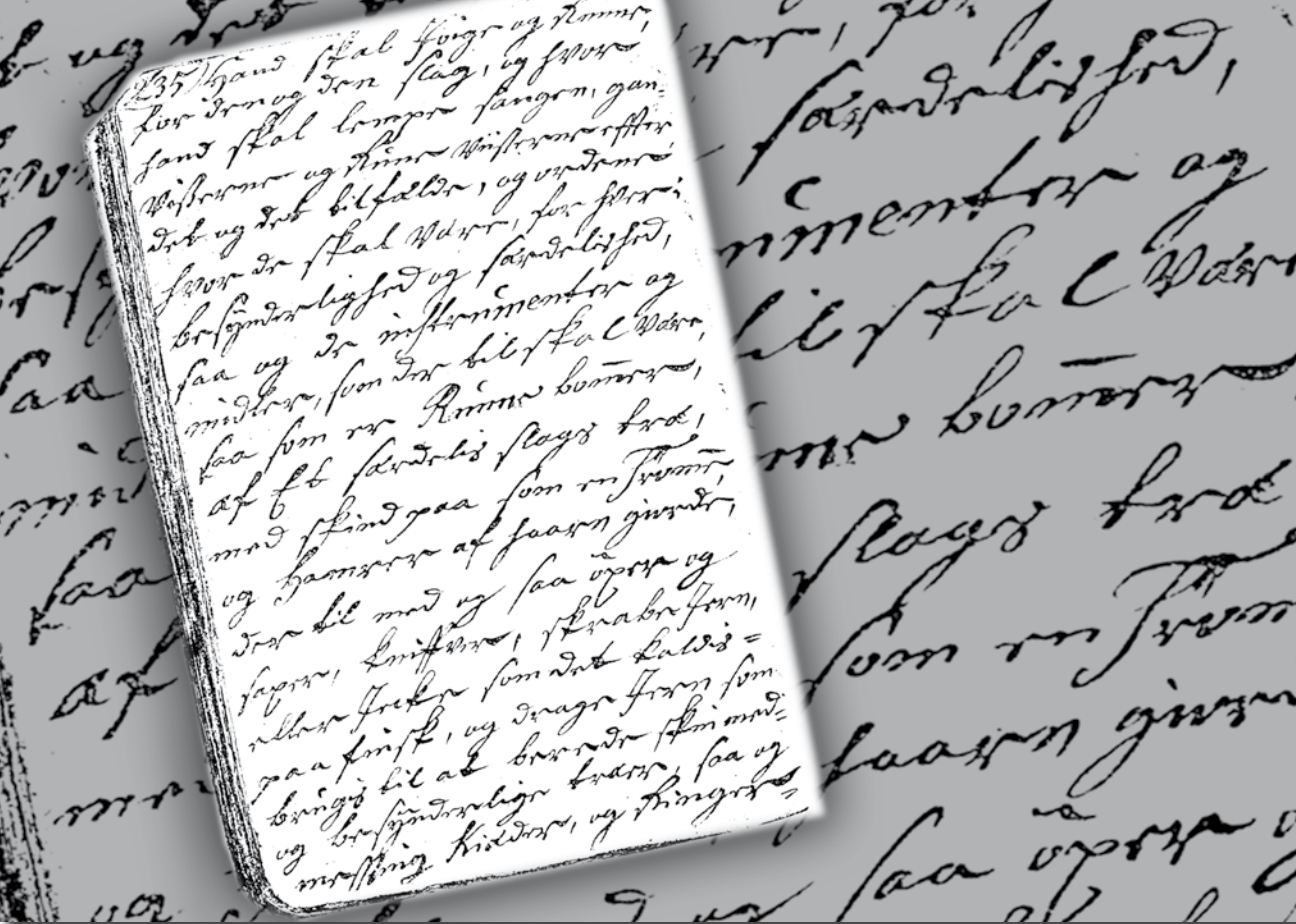 235) Hand skal söige og Runne,
for den og den slag, og hvor
hand skal lempe sangen, gan-
Viserne og Rune Viiserne effter
det og det tilfælde, og ordene
hvor de skal være, for hver:
besÿnderlighed og særdelished,
saa og de instrumenter og
midler, som der til skal være,
saa som er Runne bom̄er,
af Et særdelis slags træ,
med skind paa som en Trom̄e,
og Hamrer af haarn giorde,
der til med og saa öxer og
saxer, kniffver, skrabe Jern,
eller Jecke som det kaldis =
paa finsk, og drage Jern som
brugis til at berede skin med=
og besÿnderlige træer, saa og
messing Kiæder, og Ringer=